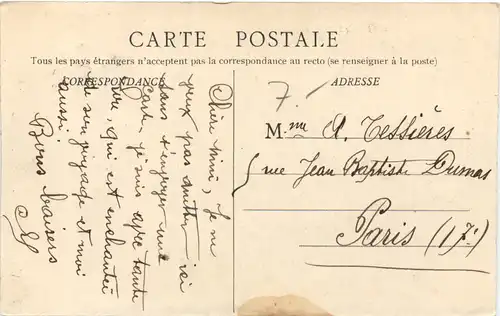 CARTE POSTALE
Tous les pays étrangers n'acceptent pas la correspondance au recto (se renseigner à la poste)
CORRESPONDANCE
ADRESSE
7.
Chère mimi, Je ne
veux pas quitter ici
sans t'envoyer une
carte, je suis avec tante
qui est enchantée
de son voyage et moi
aussi.
Bons baisers
Mme A. Tessières
5 rue Jean Baptiste Dumas
Paris (17e)